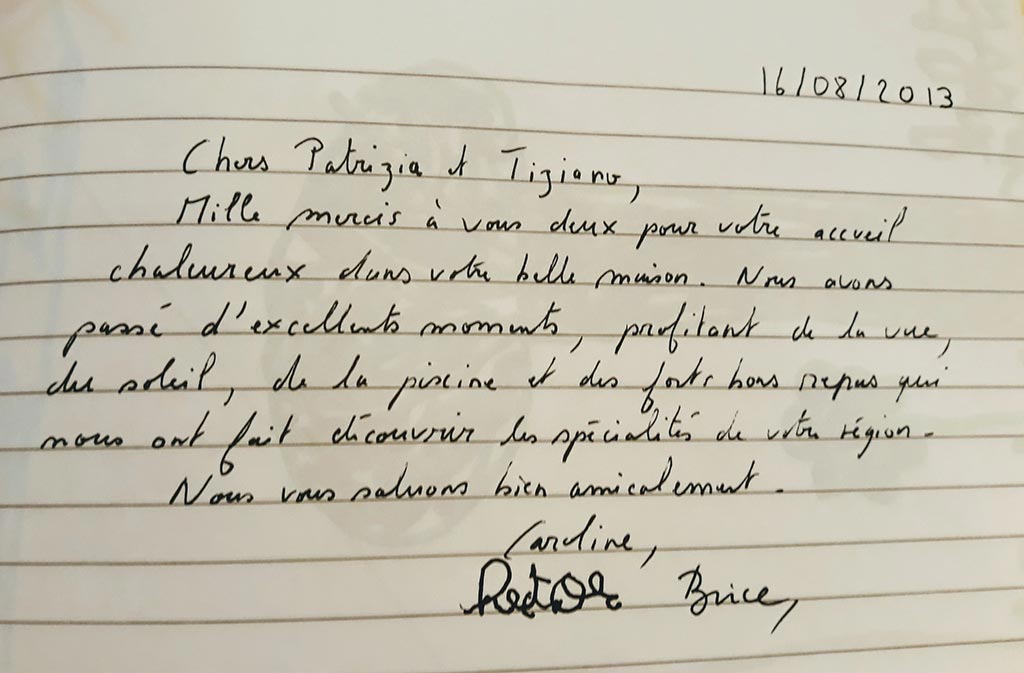 16/08/2013
Chers Patrizia et Tiziano,
Mille mercis à vous deux pour votre accueil
chaleureux dans votre belle maison. Nous avons
passé d'excellents moments, profitant de la vue,
du soleil, de la piscine et des forts bons repas qui
nous ont fait découvrir les spécialités de votre région.
Nous vous saluons bien amicalement.
Caroline,
Brice,